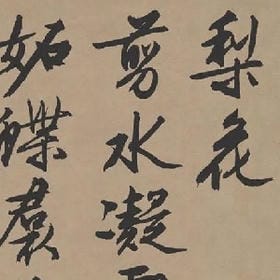 梨花
剪水凝
妬蝶裙